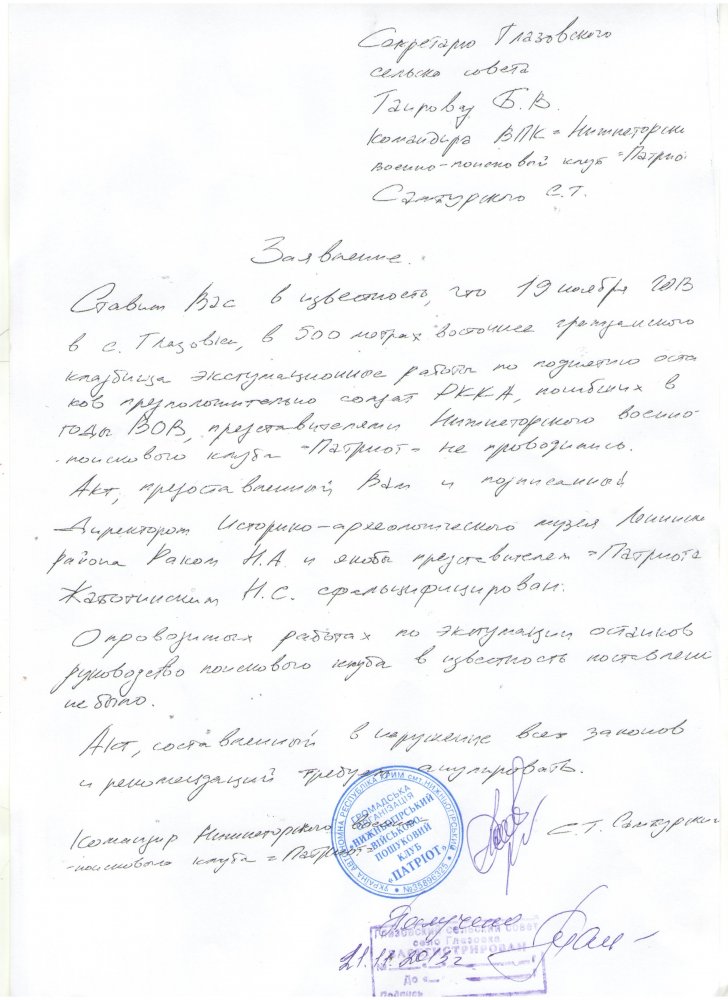 Секретарю Глазовского
сельско совета
Таирову Б.В.
Командира ВПК "Нижнегорски
военно-поисковый клуб "Патрио
Самтурского С.Т.
Заявление.
Ставим Вас в известность, что 19 ноября 2013
в с. Глазовка, в 500 метрах восточнее гражданского
кладбища эксгумационные работы по поднятию оста
ков предположительно солдат РККА, погибших в
годы ВОВ, представителями Нижнегорского военно-
-поискового клуба "Патриот" не проводились.
Акт, предоставленный Вам и подписанный
Директором Историко-археологического музея Ленинско
района Раком Н.А. и якобы представителем "Патриота
Жаботинским Н.С. сфальцифицирован.
О проводимых работах по эксгумации останков
руководство поискового клуба в известность поставлено
не было.
Акт, составленный в нарушение всех законов
и рекомендаций требуем анулировать.
Командир Нижнегорского военно
-поискового клуба "Патриот"
С.Т. Самтурский
УКРАЇНА АВТОНОМНА РЕСПУБЛІКА КРИМ смт.НИЖНЬОГІРСЬКИЙ
ГРОМАДСЬКА
ОРГАНІЗАЦІЯ
«НИЖНЬОГІРСЬКИЙ
ВІЙСЬКОВО-
ПОШУКОВИЙ
КЛУБ
«ПАТРІОТ»
Получено
21.11.2013г.
Глазовский сельский совет
село Глазовка
ЗАРЕГИСТРИРОВАН
Подпись